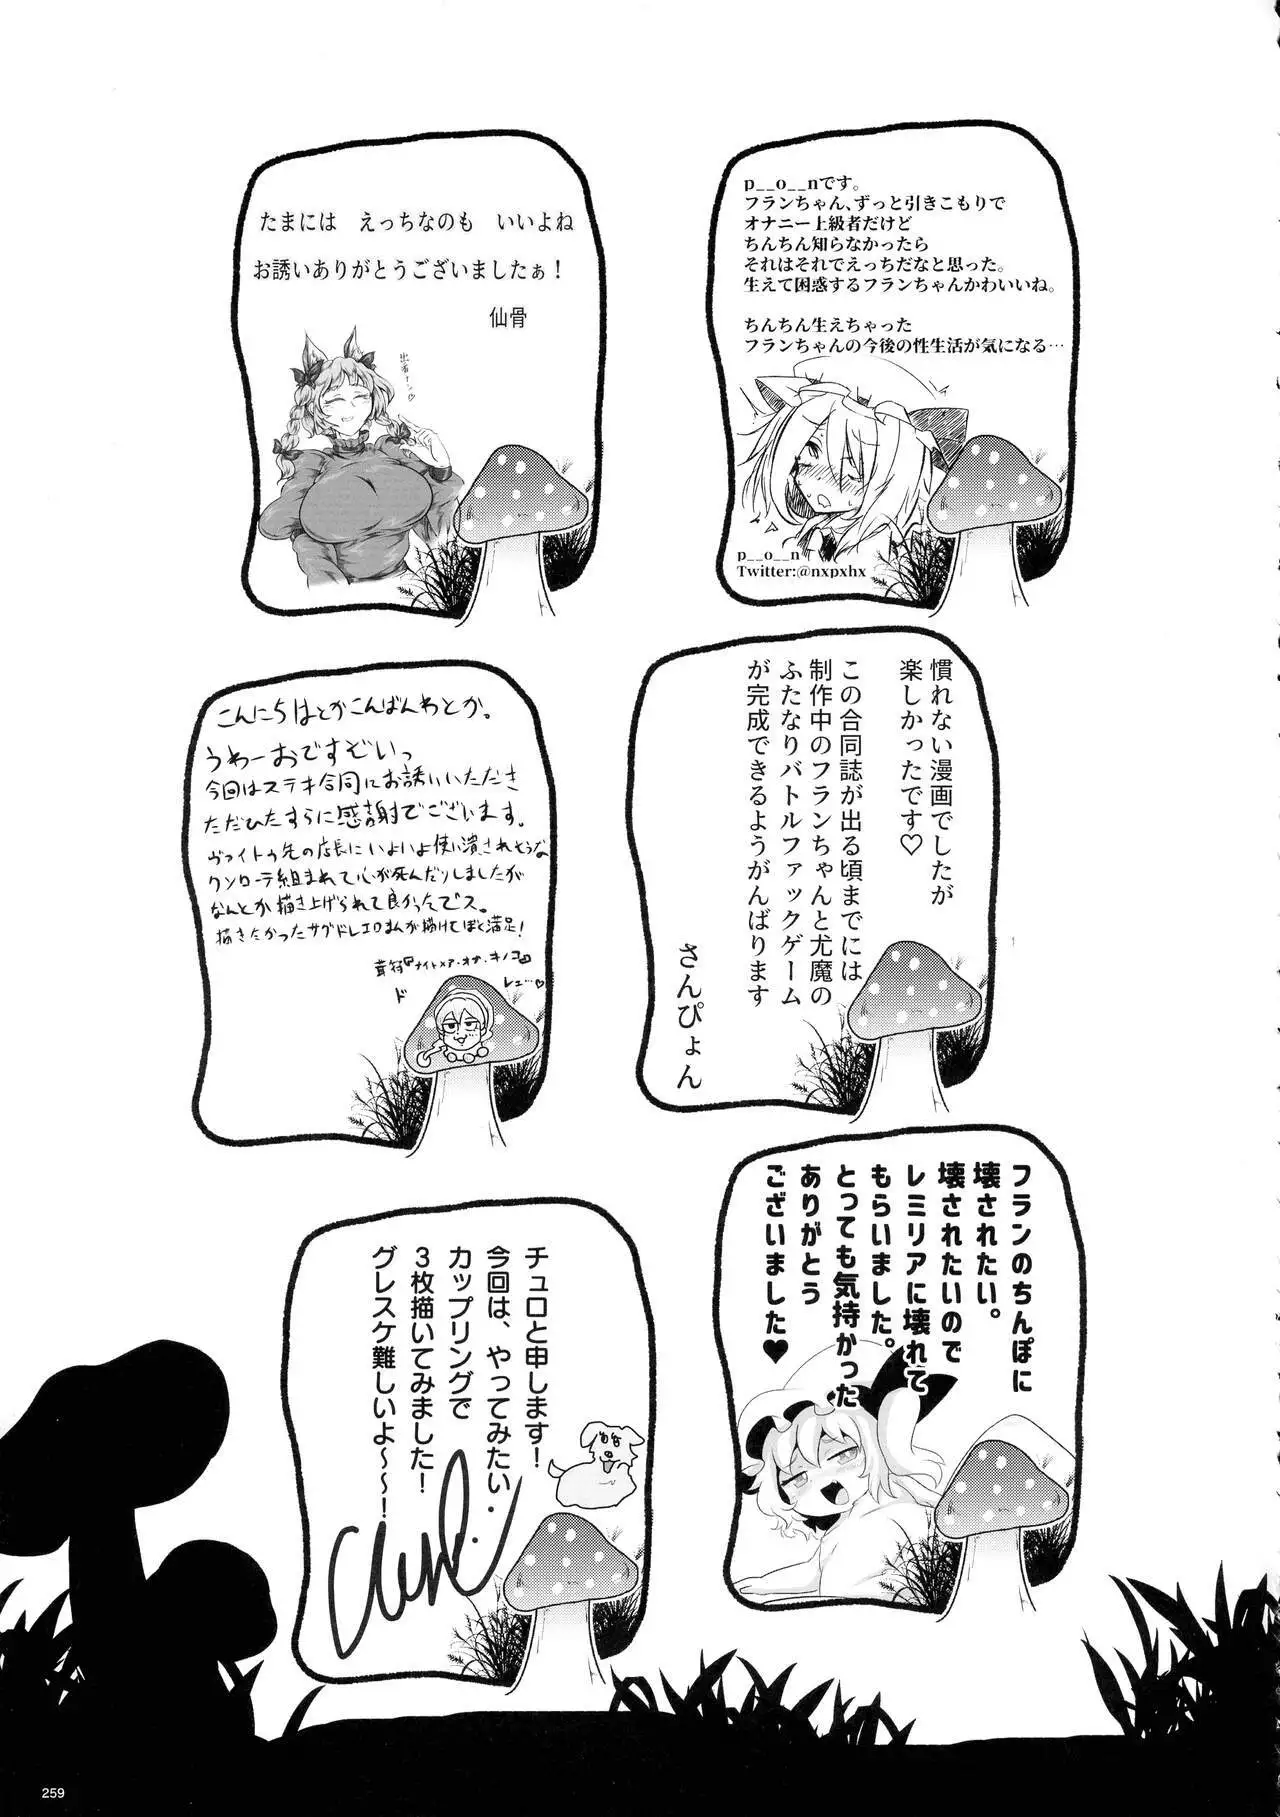 たまには えっちなのも いいよね
お誘いありがとうございましたぁ！
仙骨
p__o__nです。
フランちゃん、ずっと引きこもりで
オナニー上級者だけど
ちんちん知らなかったら
それはそれでえっちだなと思った。
生えて困惑するフランちゃんかわいいね。
ちんちん生えちゃった
フランちゃんの今後の性生活が気になる…
p__o__n
Twitter:@nxpxhx
こんにちはとかこんばんわとか。
うわーおですぞいっ
今回はステキ合同にお誘いいただき
ただひたすらに感謝でございます。
ヴァイトゥ先の店長にいよいよ使い潰されそうな
ワンローテ組まれて心が死んだりしましたが
なんとか描き上げられて良かったでス。
描きたかったサグドレエロまんが描けてぼく満足！
慣れない漫画でしたが
楽しかったです♡
この合同誌が出る頃までには
制作中のフランちゃんと尤魔の
ふたなりバトルファックゲーム
が完成できるようがんばります
さんぴょん
チュロと申します！
今回は、やってみたい
カップリングで
３枚描いてみました！
グレスケ難しいよ～～！
フランのちんぽに
壊されたい。
壊されたいので
レミリアに壊れて
もらいました。
とっても気持かった
ありがとう
ございました♥
259